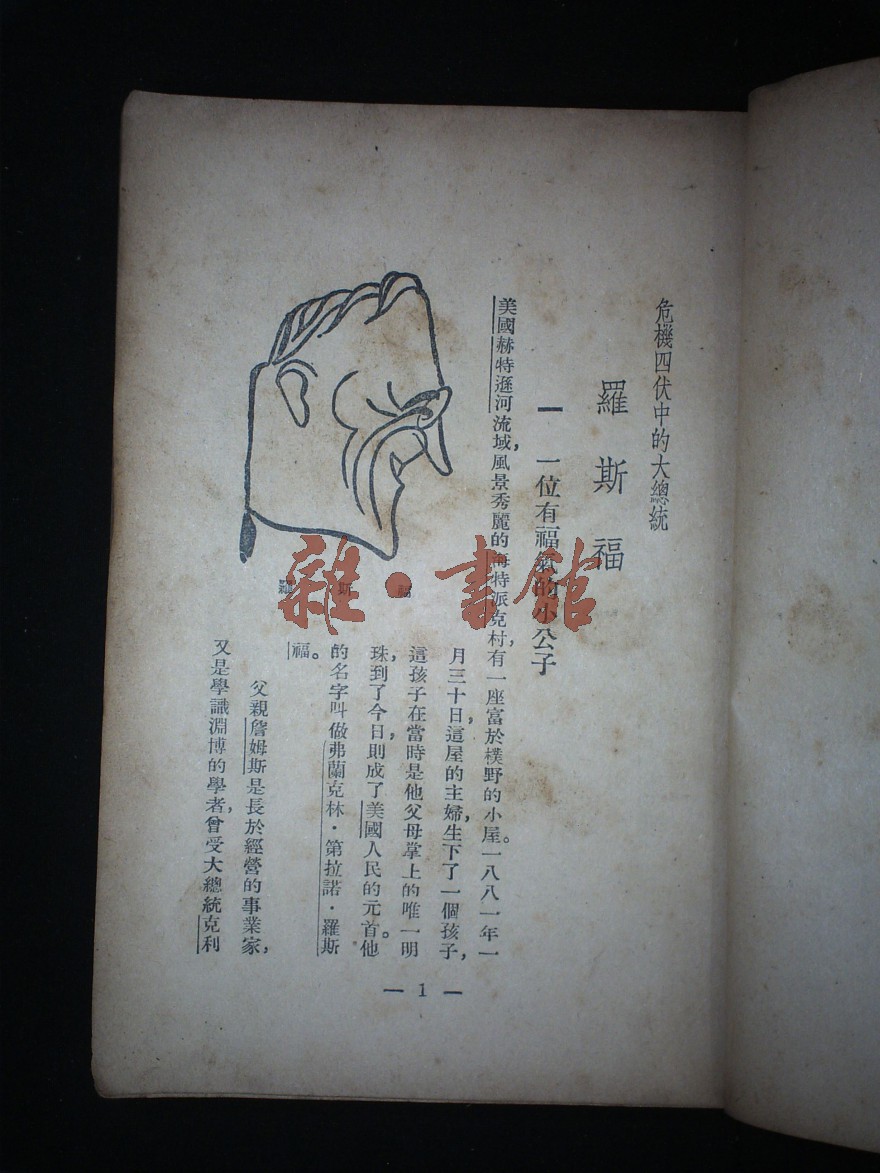 危機四伏中的大總統
羅斯福
一 一位有福氣的小公子
美國赫特遜河流域，風景秀麗的海特派克村，有一座富於樸野的小屋。一八八一年一
月三十日，這屋的主婦，生下了一個孩子，
這孩子在當時是他父母掌上的唯一明
珠，到了今日，則成了美國人民的元首。他
的名字叫做弗蘭克林·第拉諾·羅斯
福。
父親詹姆斯是長於經營的事業家，
又是學識淵博的學者，曾受大總統克利
羅斯福
— 1 —
雜·書館